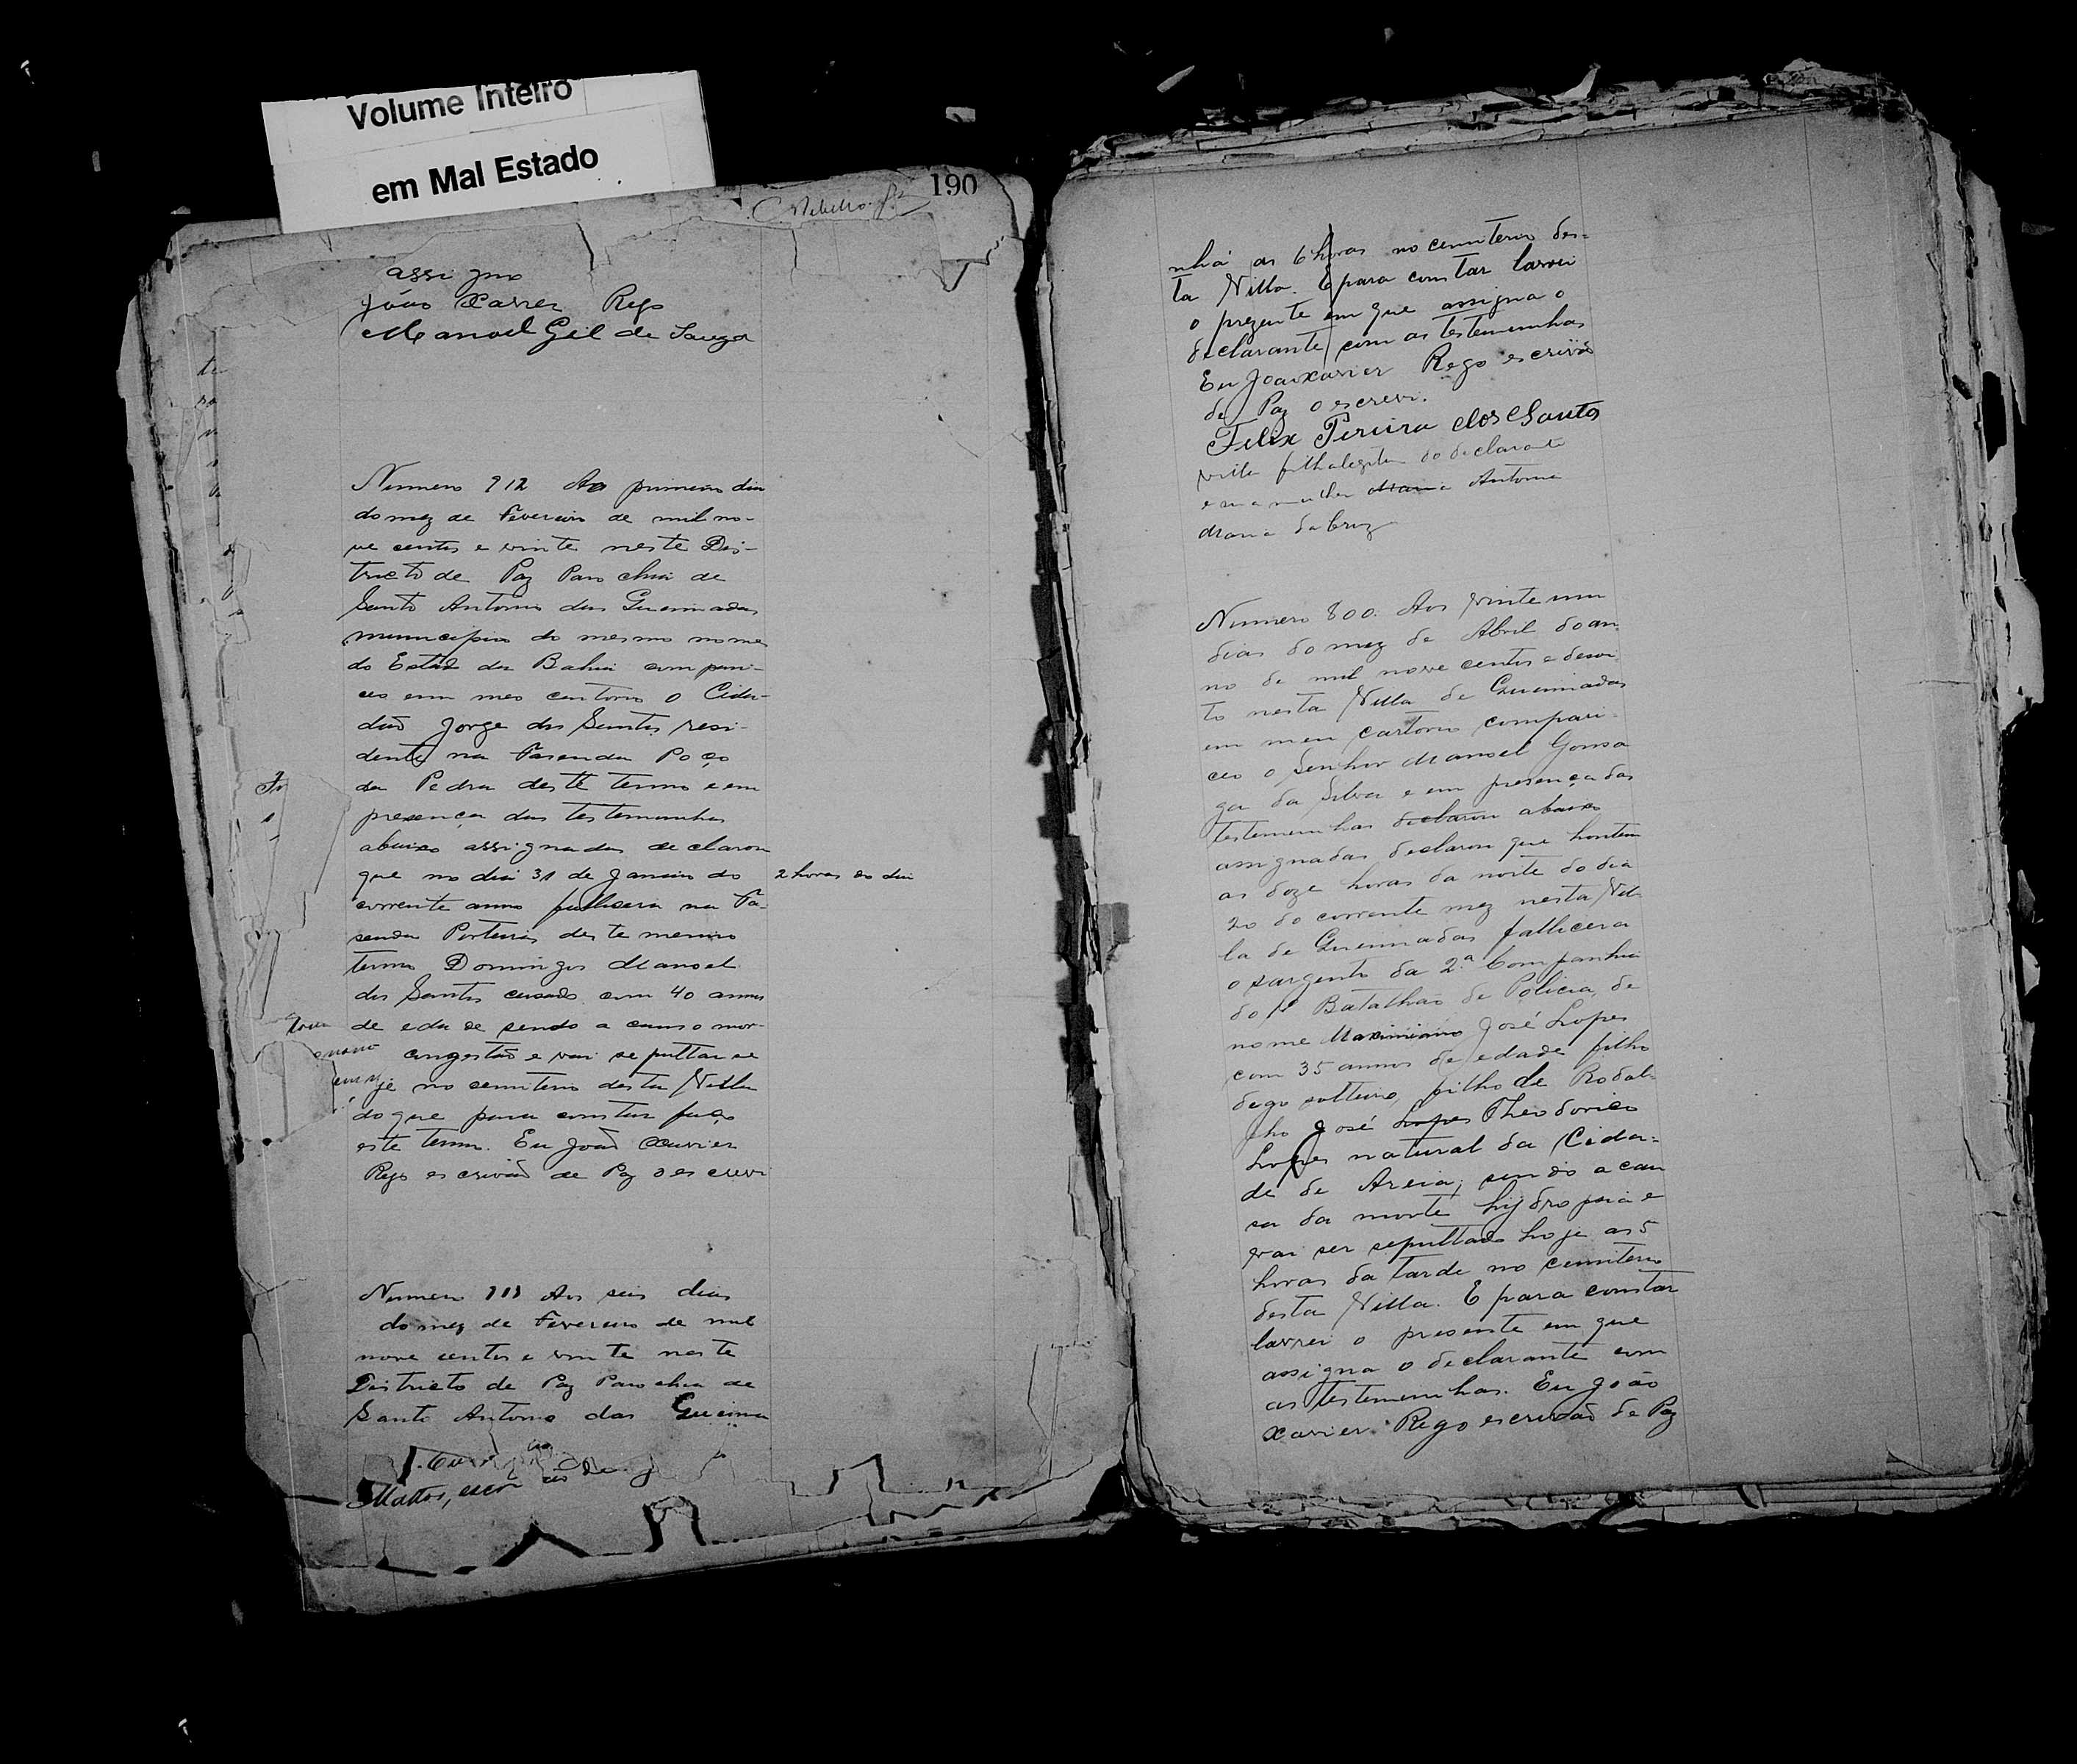 Volume Inteiro
em Mal Estado
190
assigno
João Xavier Rego
Manoel Gil de Souza
Numero 912 Ao primeiro dia
do mez de Fevereiro de mil no-
ve centos e vinte neste Dis-
tricto de Paz Parochia de
Santo Antonio das Queimadas
municipio do mesmo nome
do Estado da Bahia compare-
ceo em meo cartorio o Cida-
dão Jorge dos Santos resi-
dente na Fasenda Poço
da Pedra deste termo e em
presença das testemunhas
abaixo assignadas declarou
que no dia 31 de Janeiro do
2 horas do dia
corrente anno fallicera na Fa-
senda Porteiras deste mesmo
termo Domingos Manoel
dos Santos casado com 40 annos
de edade sendo a causa mor-
congestão e vai sepultar se
je no cemiterio desta Villa
do que para constar faço
este termo. Eu João Xavier
Rego escrivão de Paz o escrevi
Numero 913 Aos seis dias
do mez de Fevereiro de mil
nove centos e vinte neste
Districto de Paz Parochia de
Santo Antonio das Queima
Mattos, escr
nhã as 6 horas no cemiterio des-
ta Villa. E para constar lavrei
o prezente em que assigna o
declarante com as testemunhas
Eu João Xavier Rego escrivão
de Paz o escrevi.
Felix Pereira dos Santos
filha legitima do declarante
e sua mulher Maria Antonia
Maria da Cruz
Numero 800. Aos vinte um
dias do mez de Abril do an-
no de mil nove centos e desoi-
to nesta Villa de Queimadas
em meu cartorio compare-
ceo o Senhor Manoel Gonsa
ga da Silva e em presença das
testemunhas declarou abaixo
assignadas declarou que hontem
as doze horas da noite do dia
20 do corrente mez nesta Vil-
la de Queimadas fallicera
o sargento da 2ª Companhia
do 1º Batalhão de Policia, de
nome Maximiano José Lopes
com 35 annos de edade filho
digo solteiro, filho de Rodol-
pho José Lopes Theodorico
Lopes natural da Cida-
de de Areia, sendo a cau
sa da morte hydropsia e
vai ser sepultado hoje as 5
horas da tarde no cemiterio
desta Villa. E para constar
lavrei o presente em que
assigna o declarante com
as testemunhas. Eu João
Xavier Rego escrivão de Paz